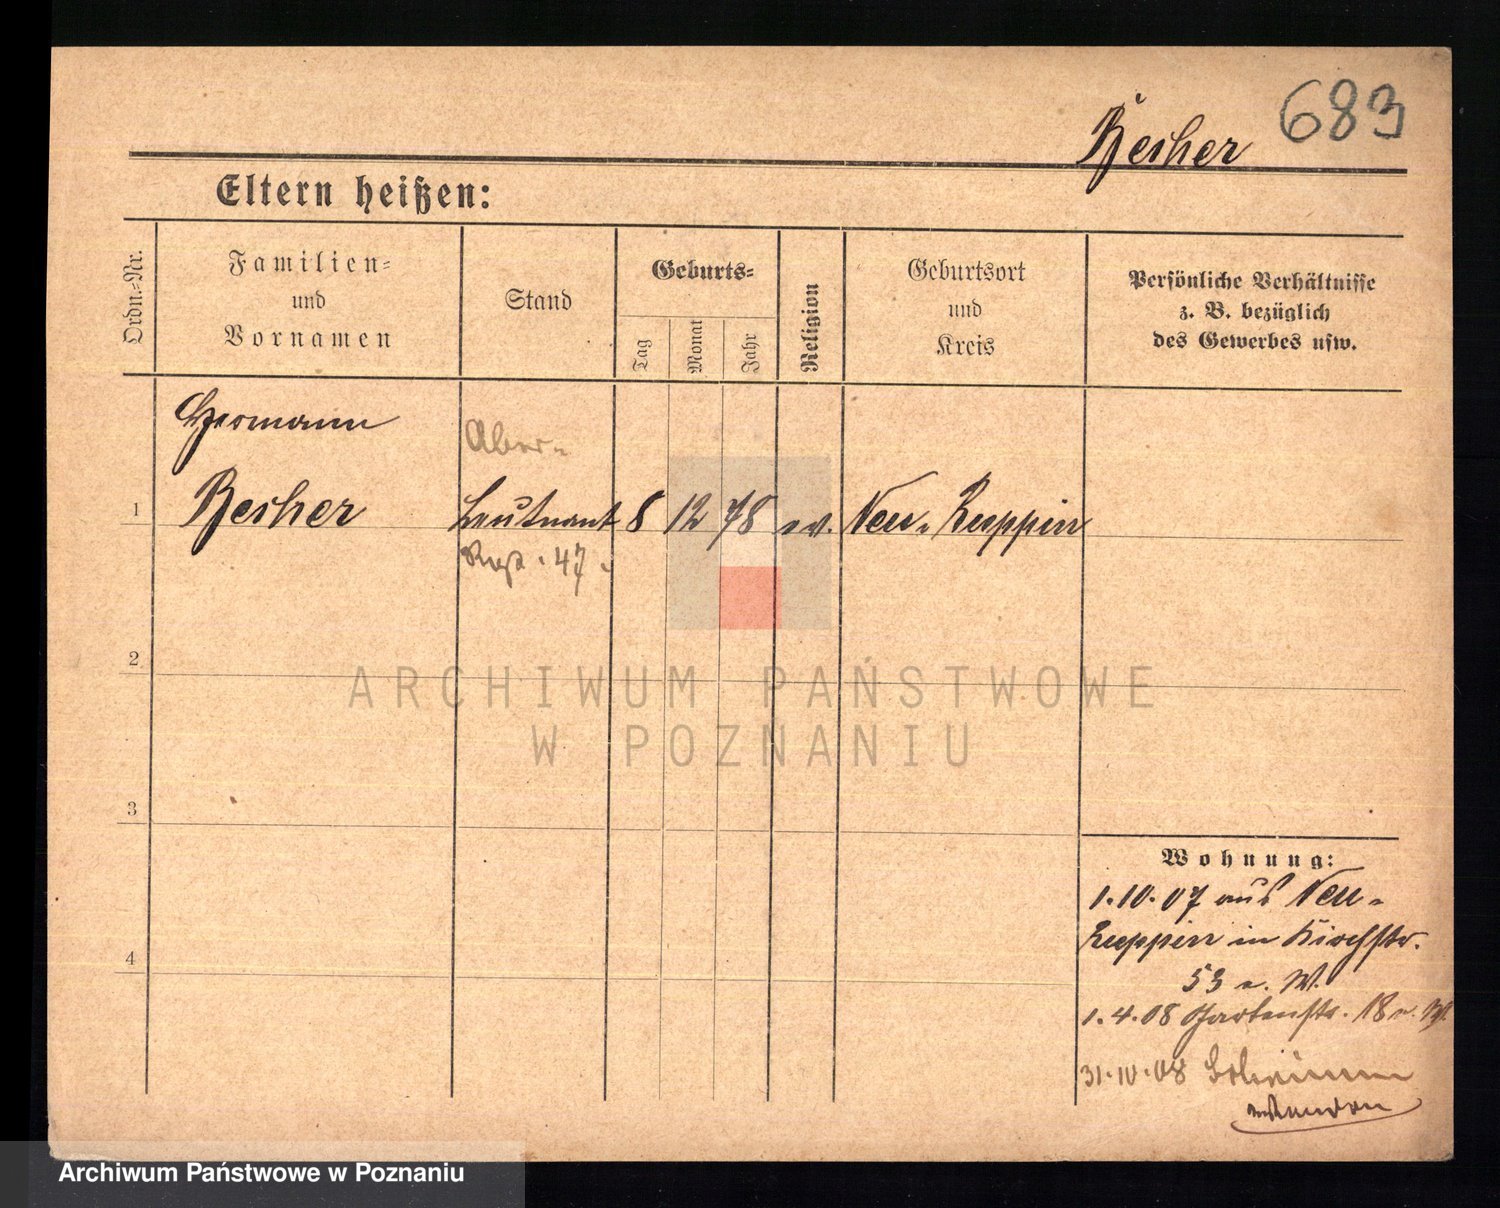 683
Becher
Eltern heißen:
Ordn.-Nr.
Familien-
und
Vornamen
Stand
Geburts-
Tag
Monat
Jahr
Religion
Geburtsort
und
Kreis
Persönliche Verhältnisse
z. B. bezüglich
des Gewerbes usw.
Hermann
Ober-
1 Becher Leutnant 8 12 78 ev. Neu-Ruppin
47
2
ARCHIWUM PAŃSTWOWE
W POZNANIU
3
Wohnung:
1.10.07 aus Neu-
Ruppin in Kirchstr.
4
53 a. W.
1.4.08 Gartenstr. 18
31.10.08
Archiwum Państwowe w Poznaniu